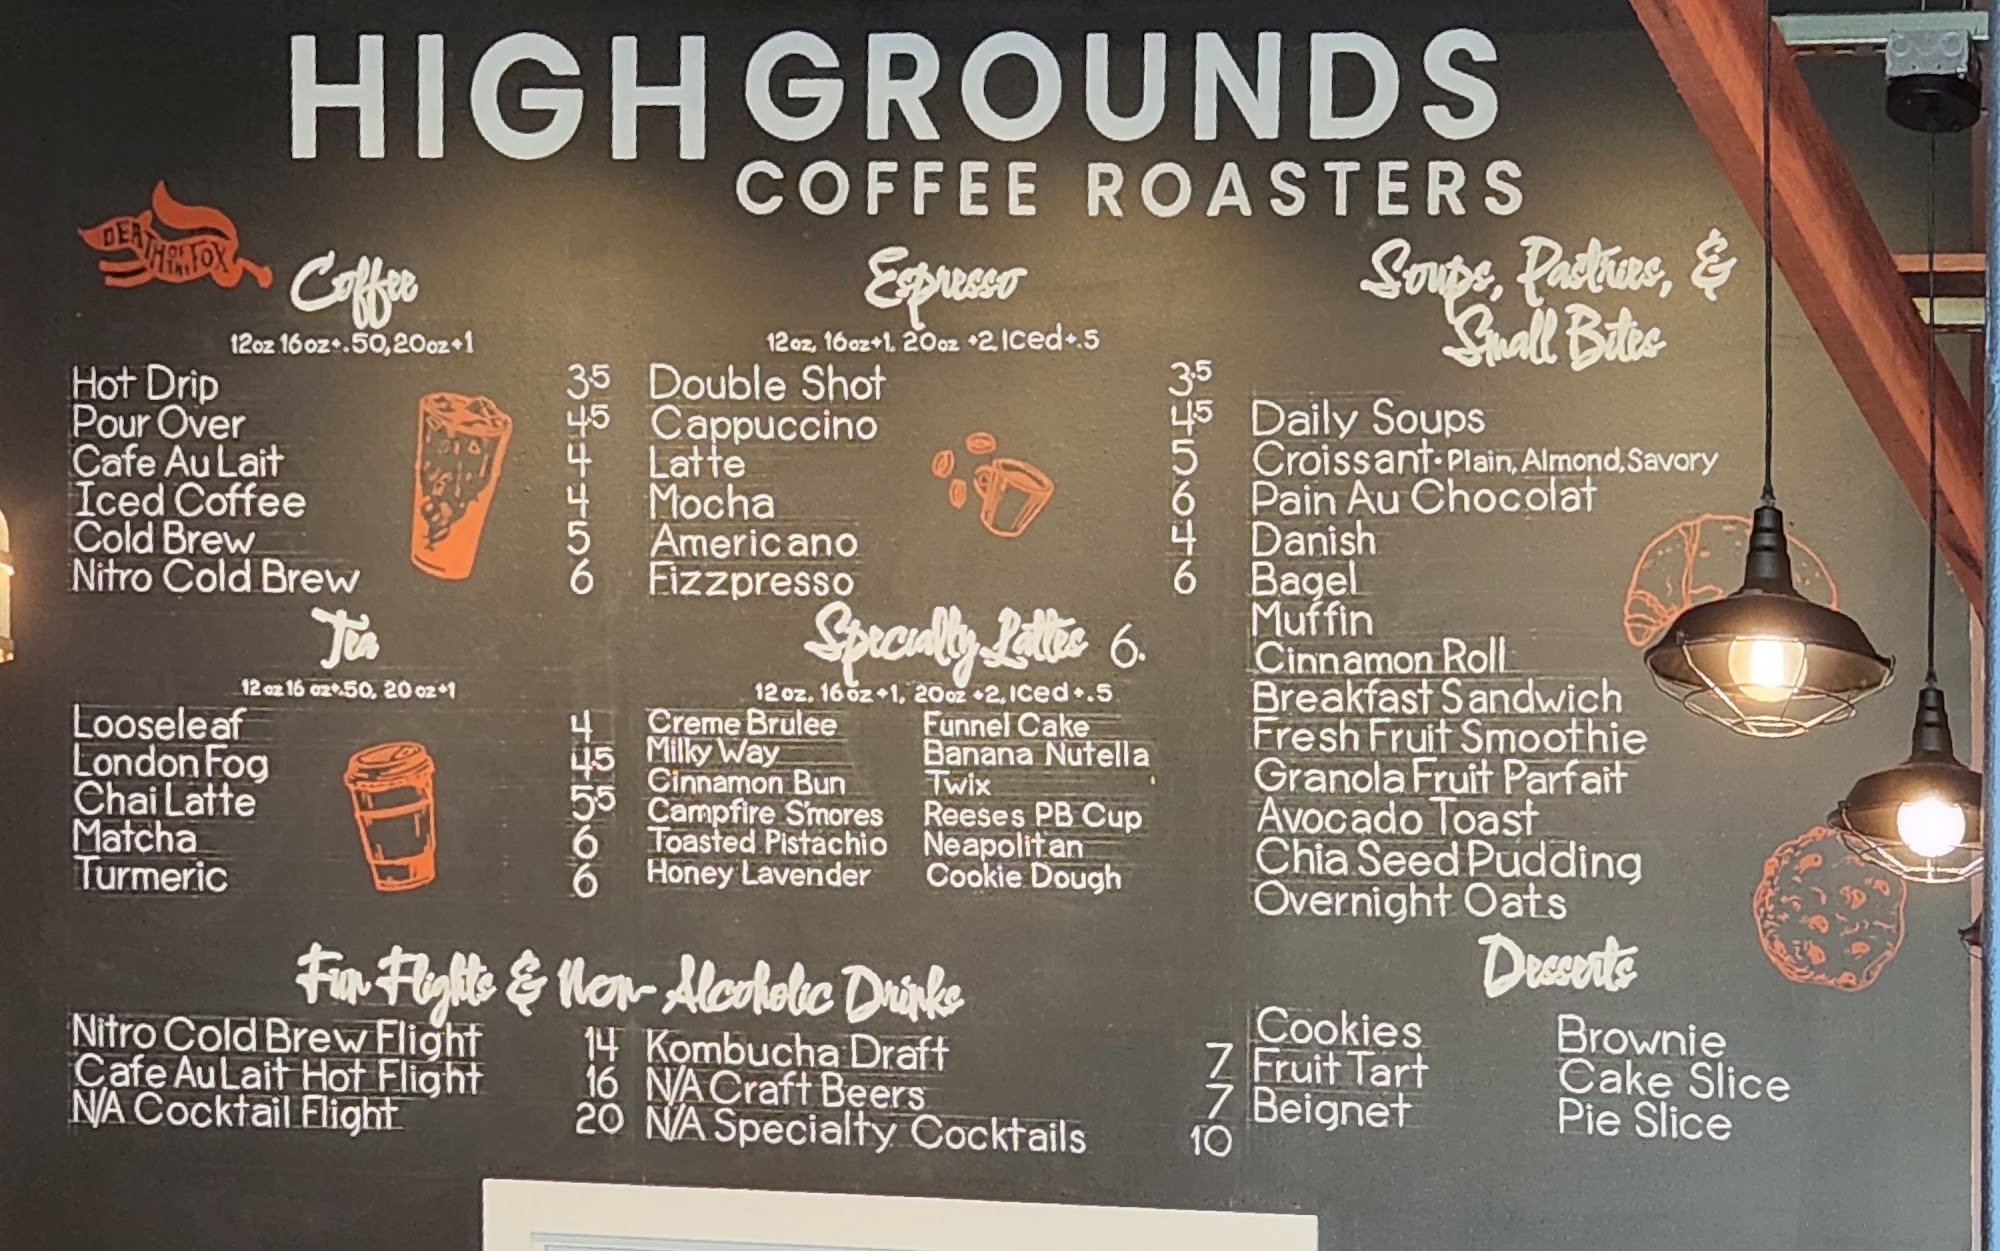 HIGH GROUNDS
COFFEE ROASTERS
DEATH OF THE FOX
Coffee
12oz 16oz+.50, 20oz+1
Hot Drip 3.5
Pour Over 4.5
Cafe Au Lait 4
Iced Coffee 4
Cold Brew 5
Nitro Cold Brew 6
Tea
12oz 16 oz+.50, 20 oz+1
Looseleaf 4
London Fog 4.5
Chai Latte 5.5
Matcha 6
Turmeric 6
Espresso
12oz, 16oz+1, 20oz +2 Iced+.5
Double Shot 3.5
Cappuccino 4.5
Latte 5
Mocha 6
Americano 4
Fizzpresso 6
Specialty Lattes 6.
12oz. 16oz+1, 20oz +2, Iced+.5
Creme Brulee Funnel Cake
Milky Way Banana Nutella
Cinnamon Bun Twix
Campfire S'mores Reeses PB Cup
Toasted Pistachio Neapolitan
Honey Lavender Cookie Dough
Soups, Pastries, &
Small Bites
Daily Soups
Croissant·Plain, Almond, Savory
Pain Au Chocolat
Danish
Bagel
Muffin
Cinnamon Roll
Breakfast Sandwich
Fresh Fruit Smoothie
Granola Fruit Parfait
Avocado Toast
Chia Seed Pudding
Overnight Oats
Fun Flights & Non-Alcoholic Drinks
Nitro Cold Brew Flight 14
Cafe Au Lait Hot Flight 16
N/A Cocktail Flight 20
Kombucha Draft 7
N/A Craft Beers 7
N/A Specialty Cocktails 10
Desserts
Cookies Brownie
Fruit Tart Cake Slice
Beignet Pie Slice